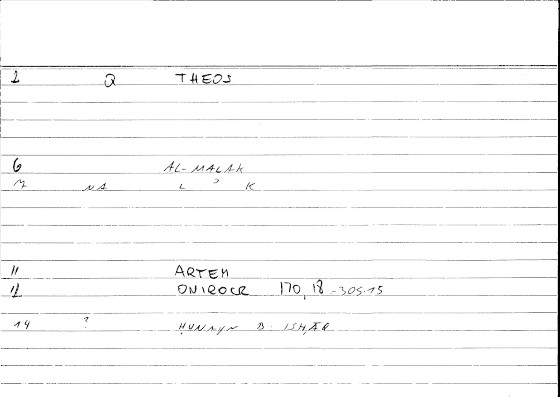 1 Q THEOS
6 AL-MALAK
M NA L ʾ K
11 ARTEM
12 ONIROCR 170, 18 - 305.15
14 ? ḤUNAYN B. ISḤĀQ